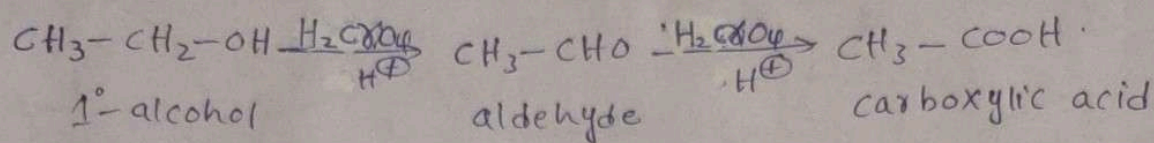 CH3-CH2-OH H2CrO4 H⊕ → CH3-CHO H2CrO4 H⊕ → CH3-COOH.
1°-alcohol aldehyde carboxylic acid